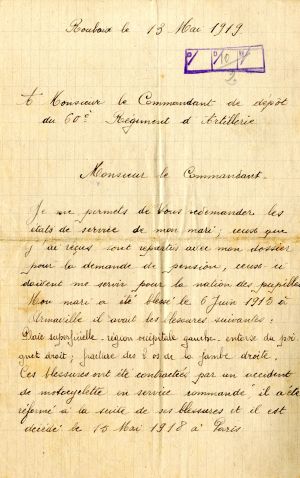 Roubaix le 13 Mai 1919
A Monsieur le Commandant de dépôt
du 60e Régiment d'Artillerie
Monsieur le Commandant.
Je me permets de Vous redemander les
états de service de mon mari; ceux que
j'ai reçus sont repartis avec mon dossier
pour la demande de pension, ceux-ci
doivent me servir pour la nation des pupilles
Mon mari a été blessé le 6 Juin 1915 à
il avait les blessures suivantes:
Plaie superficielle - région occipitale gauche - entorse du poi
gnet droit; fracture des 2 os de la jambe droite.
Ces blessures ont été contractées par un accident
de motocyclette en service commandé il a été
réformé à la suite de ses blessures et il est
décédé le 15 Mai 1918 à Paris